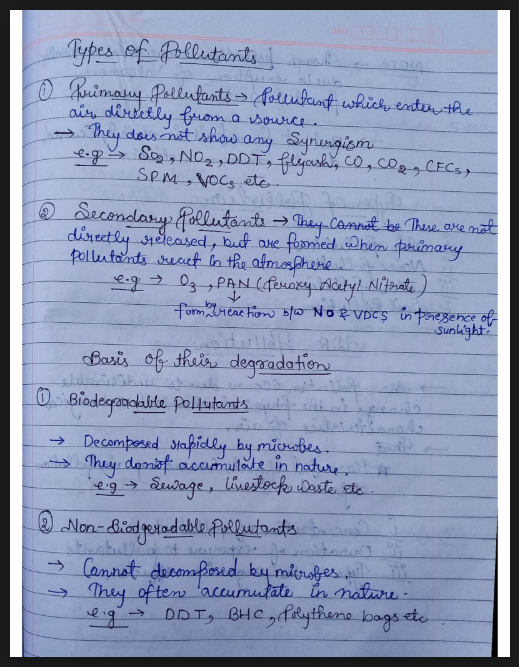 Types of Pollutants
① Primary Pollutants → Pollutant which enter the
air directly from a source.
→ They does not show any Synergism
e.g → SO2, NO2, DDT, flyash, CO, CO2, CFCs,
SPM, VOCs etc.
② Secondary Pollutants → They cannot be These are not
directly released, but are formed when primary
pollutants react in the atmosphere.
e.g → O3, PAN (Peroxy Acetyl Nitrate)
↓
form by reaction b/w NO & VDCS in presence of
sunlight.
Basis of their degradation
① Biodegradable pollutants
→ Decomposed rapidly by microbes.
→ They donot accumulate in nature.
e.g → Sewage, livestock waste etc.
② Non-Biodgeradable Pollutants
→ Cannot decomposed by microbes.
→ They often accumulate in nature.
e.g → DDT, BHC, Polythene bags etc